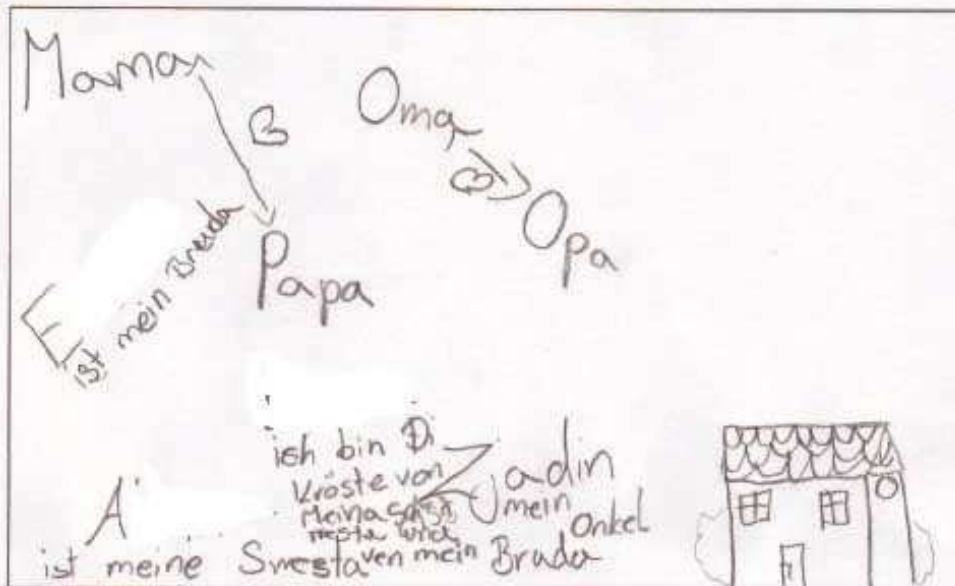 Mama
Oma
Opa
Papa
E
ist mein Bruda
ich bin Di
kröste von
Meina
ven mein Bruda
Jadin
mein
Onkel
A
ist meine Swesta